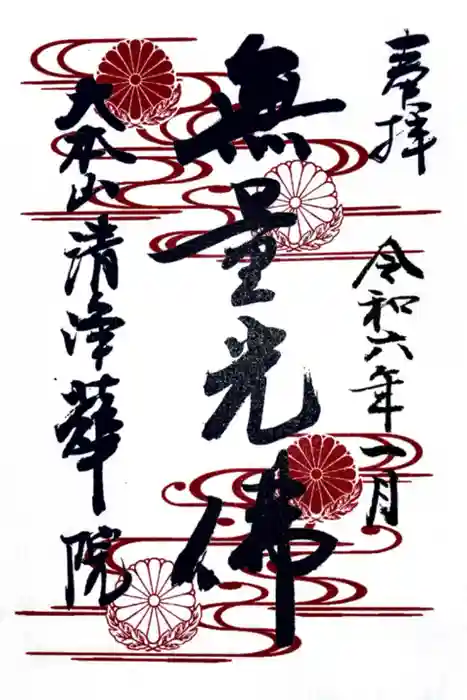 奉拝
令和六年一月
無量光佛
大本山
清浄華院